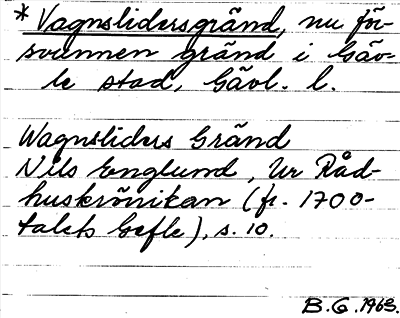 * Vagnslidersgränd, nu för-
svunnen gränd i Gäv-
le stad, Gävl. l.
Wagnsliders Gränd
Nils Englund, Ur Råd-
huskrönikan (fr. 1700-
talets Gefle), s. 10.
B.G. 1963.